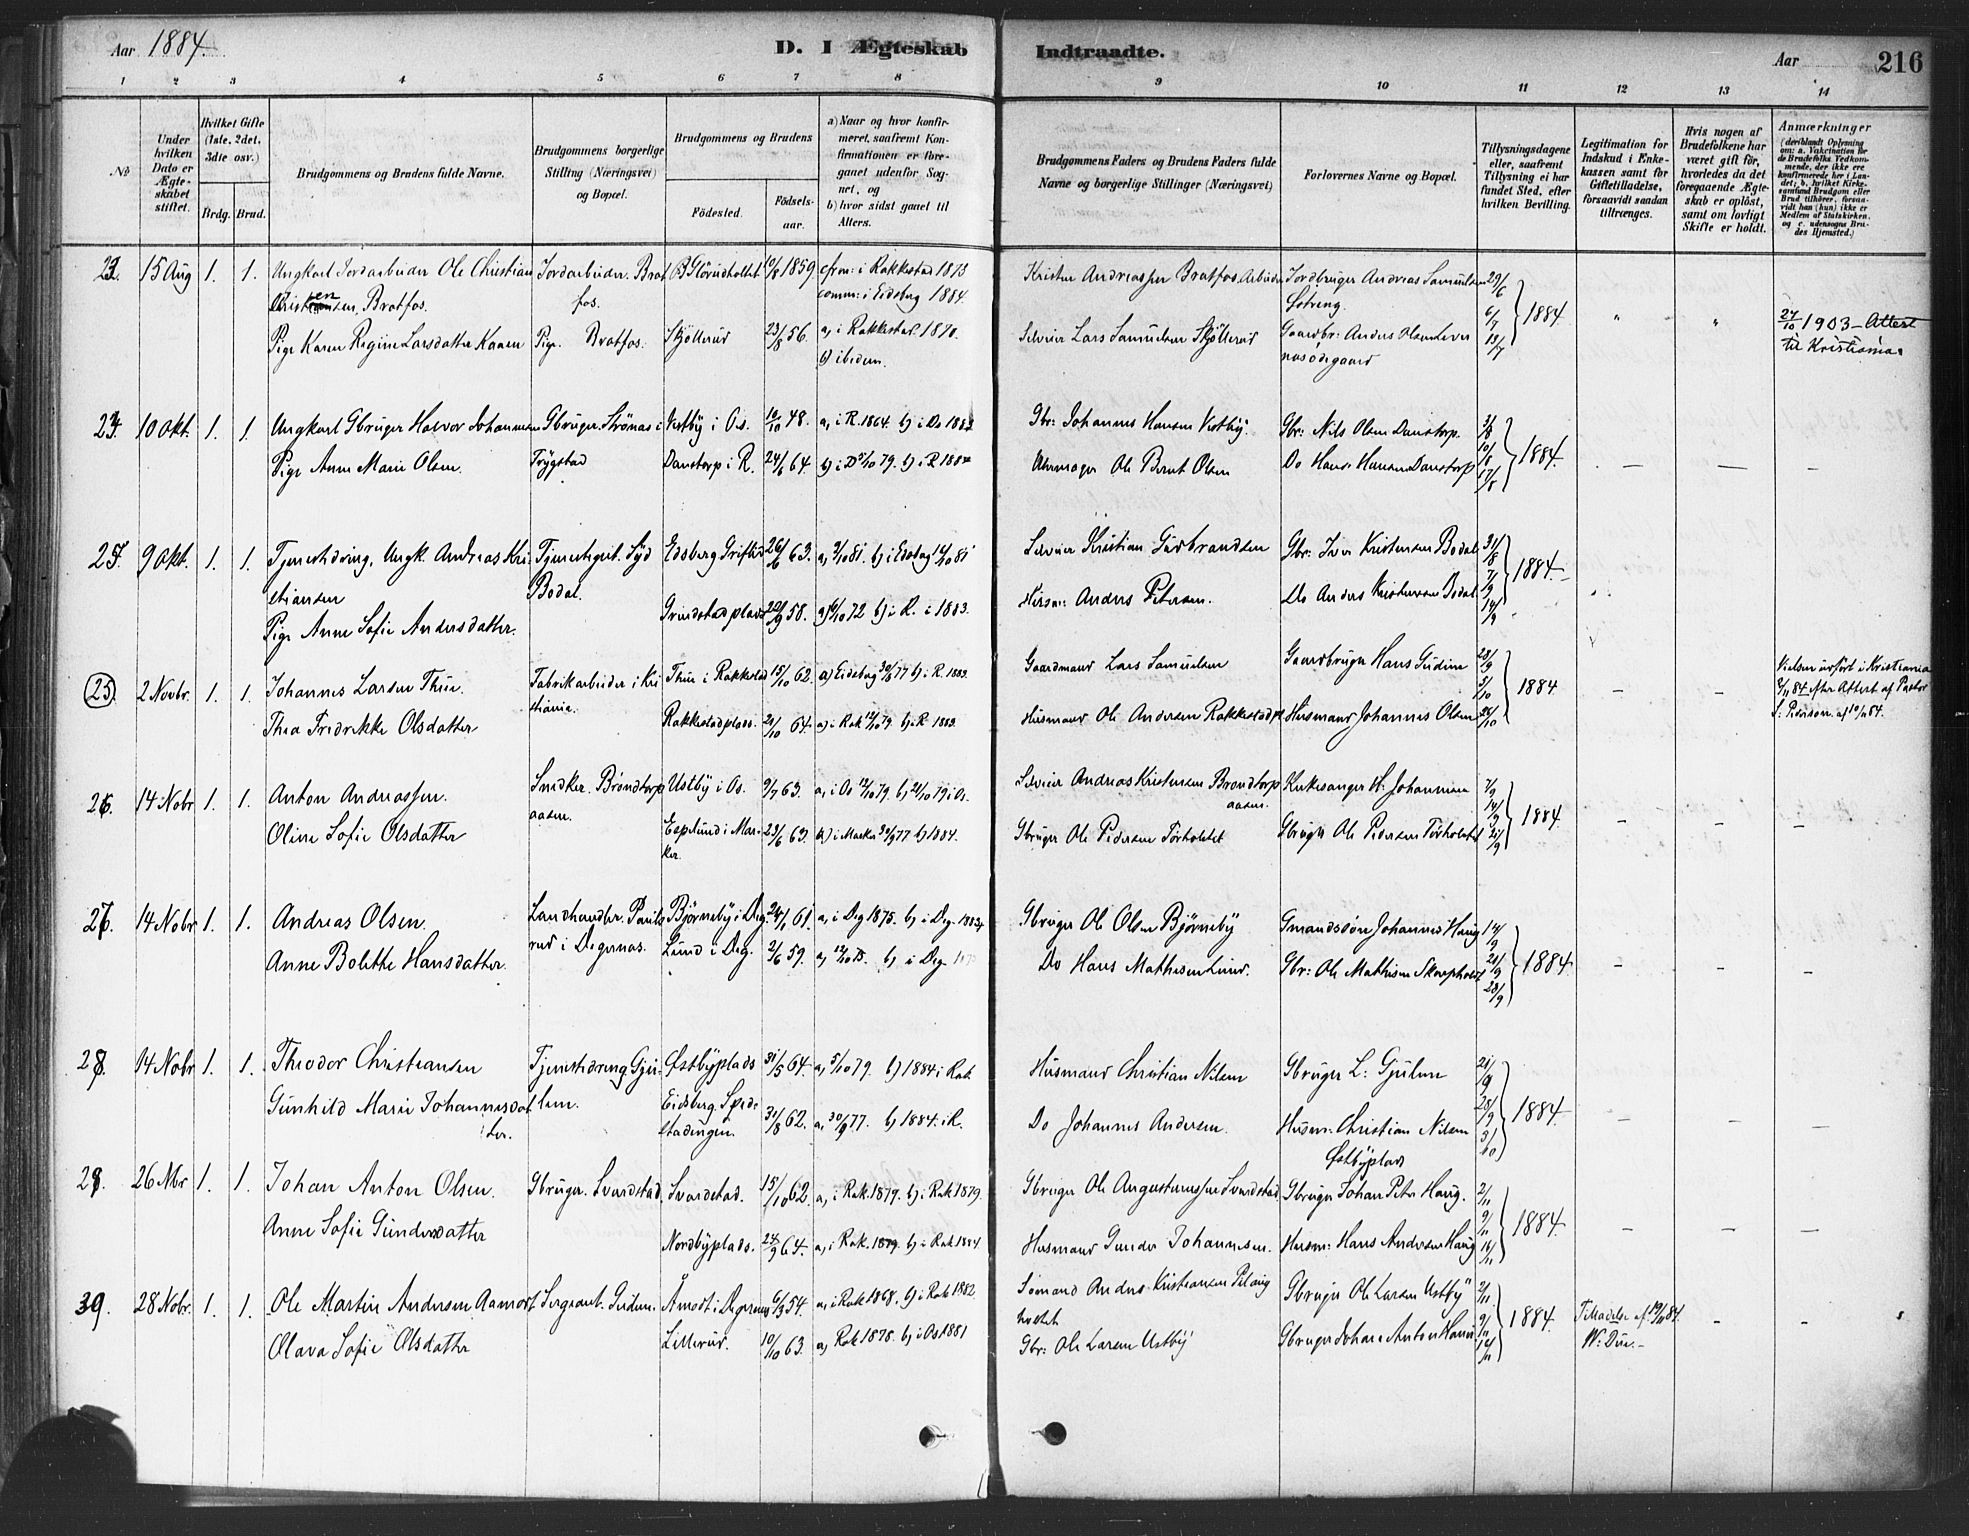 Aar 1884.
D. I Ægteskab
Indtraadte.
Aar
216
1 2 3 4 5 6 7 8 9 10 11 12 13 14
No
Under hvilken Dato er Ægteskabet stiftet.
Hvilket Gifte (1ste, 2det, 3die osv.)
Brdg. Brud.
Brudgommens og Brudens fulde Navne.
Brudgommens borgerlige Stilling (Næringsvei) og Bopæl.
Brudgommens og Brudens
Fødested.
Fødselsaar.
a) Naar og hvor konfirmeret, saafremt Konfirmationen er foregaaet udenfor Sognet, og
b) hvor sidst gaaet til Alters.
Brudgommens Faders og Brudens Faders fulde Navne og borgerlige Stillinger (Næringsvei)
Forlovernes Navne og Bopæl.
Tillysningsdagene eller, saafremt Tillysning ei har fundet Sted, efter hvilken Bevilling.
Legitimation for Indskud i Enkekassen samt for Giftetilladelse, forsaavidt saadan tiltrænges.
Hvis nogen af Brudefolkene har været gift før, hvorledes da det foregaaende Ægteskab er opløst, samt om lovligt Skifte er holdt.
Anmærkninger
(deriblandt Oplysning om: a. Vakcination for de Brudefolks Vedkommende, der ikke ere konfirmerede her i Landet; b. hvilket Kirkesamfund Brudgom eller Brud tilhører, forsaavidt han (hun) ikke er Medlem af Statskirken, og c. udensogns Brudes Hjemsted.)
15 Aug 1. 1. Ungkarl Jordarbeider Ole Christian
Bratfos.
Pige Karen Regine Larsdatter Kaaen
Jordarbeider. Bratfos.
Pige. Bratfos.
10/8 1859
Skjøllerud 23/8 56.
i Rakkestad 1873
comm: i Eidsberg 1884.
a, i Rakkestad 1870.
b) ibidem.
Krister Andreassen Bratfos. Arbeider
Selveier Lars Samuelsen Skjøllerud
Jordbruger Andreas Samuelsen
Gaardbr: Anders Olsen
29/6 6/7 13/7 1884
27/10 1903 – Attest til Kristiania
10 Okt. 1. 1. Ungkarl Gbruger Halvor Johannesen
Pige Anne Marie Olsen.
Gbruger. Strønæs i Trygstad
Vestby i Os. 10/10 48. a, i R. 1864. b) i Do 1883
Danstorp i R. 24/6 64. b) i R 1884
Gbr: Johannes Hansen Vestby.
Ole Bernt Olsen
Gbr: Nils Olsen Danstorp.
Do Hans Hansen Danstorp
3/8 10/8 17/8 1884. — — —
9 Okt. 1. 1. Tjenestedreng, Ungk. Andreas Kristiansen
Pige Anne Sofie Andersdatter.
Tjenestegut. Syd Bodal.
Edsberg 26/6 63.
Grindstadplads 58. 72 b) i R. i 1883.
Selveier Kristian Gudbrandsen
Husm: Anders Petersen.
Gbr: Iver Kristensen Bodal
Do Anders Kristensen Bodal
31/8 7/9 14/9 1884.
(25) 2 Novbr. 1. 1. Johannes Larsen Thue.
Thea Fredrikke Olsdatter
Fabrikarbeider i Kristiania.
Thue i Rakkestad 15/10 62. a) Eidsberg 30/9 77 b) i R. 1883.
Rakkestadplads. 21/10 64. a) i Rak 12/10 79 b) i R 1883.
Gaardmand Lars Samuelsen
Husmand Ole Andersen Rakkestadpl
Gaardbruger Hans Gudim
Husmand Johannes Olsen
28/9 5/10 26/10 1884 – –
Vielsen udført i Kristiania 2/11 84 efter Attest af Pastor
26. 14 Nobr 1. 1. Anton Andreassen.
Oline Sofie Olsdatter
Snedker. Brøndtorpaasen.
Ustby i Os. 9/7 63. a, i Os 12/10 79.
Esplund i Marker. 23/6 63. a) i Marker 30/9 77 b) 1884.
Selveier Andreas Kristensen Brøndtorpaasen.
Gbruger Ole Pedersen Torholdtet
Kirkesanger H. Johannesen
Gbruger Ole Pedersen Torholdtet
7/9 14/9 21/9 1884. – – –
14 Nobr 1. 1. Andreas Olsen.
Anne Bolette Hansdatter.
Landhandler. rud i Degernæs.
Bjørneby i Deg. 24/1 61. a, i Deg 1875. b) i Deg 1883
Lund i Deg. 2/6 59. b) i Deg
Gbruger Ole Olsen Bjørneby
Do Hans Mathisen Lund.
Gmandssøn Johannes Haug
Gbr: Ole Mathisen
14/9 21/9 28/9 1884 – – –
14 Nobr 1. 1. Theodor Christiansen
Gunhild Marie Johannesdatter.
Tjenestedreng Gjulem.
Østbyplads 31/5 64. a, 5/10 79. b) 1884 i Rak.
Eidsberg. 31/8 62. a, 30/9 77. b) 1884. i R.
Husmand Christian Nilsen
Do Johannes Andersen.
Gbruger L: Gjulem
Husm: Christian Nilsen Østbyplads
21/9 28/9 1884 – – –
26 Nbr 1. 1. Johan Anton Olsen.
Anne Sofie Gundersdatter
Gbruger. Svarstad
Svarstad. 15/10 62. a, i Rak. 1879. b) i Rak 1879.
Nordbyplads. 24/9 64. a, i Rak. 1879. b) i Rak 1884.
Gbruger Ole Augustinussen Svarstad.
Husmand Gunder Johannesen.
Gbruger Johan Peter Haug.
Husm: Hans Andersen Haug
2/11 9/11 16/11 1884 – – –
28 Nobr. 1. 1. Ole Martin Andersen Aamodt
Olava Sofie Olsdatter
Sergeant. Gudim.
Åmodt i Degernes 6/3 54. a, i Rak 1868. b) i Rak 1882.
Lillerud. 10/10 63. a, Rak 1878. b) i Os 1881
Anders Kristiansen
Gbr: Ole Larsen Ustby
Gbruger Ole Larsen Ustby
Gbruger Johan Anton
2/11 9/11 1884.
Tilladelse af 19/11 84.
– –